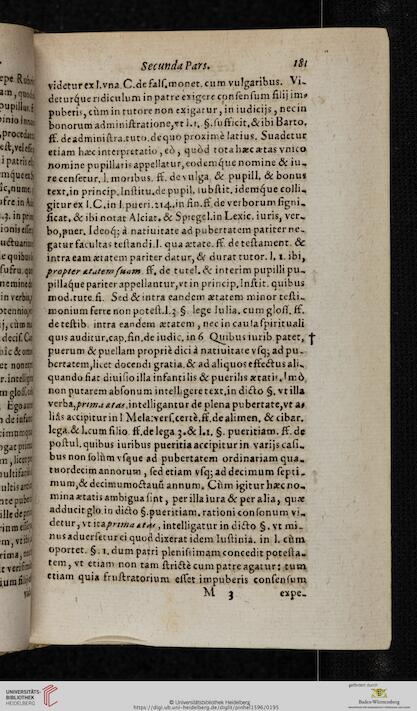 Secunda Pars. 181
videtur ex l. vna. C. de fals. monet. cum vulgaribus. Vi-
deturque ridiculum in patre exigere consensum filij im-
puberis, cùm in tutore non exigatur, in iudicijs, nec in
bonorum administratione, vt l. 1. §. sufficit, & ibi Barto.
ff. de administra. tuto. de quo proximè latius. Suadetur
etiam hæc interpretatio, eò, quòd tota hæc ætas vnico
nomine pupillaris appellatur, eodemque nomine & iu-
re censetur, l. moribus. ff. de vulga. & pupill. & bonus
text. in princip. Institu. de pupil. substit. idemque colli-
gitur ex I. C. in l. pueri. 214. in fin. ff. de verborum signi-
ficat. & ibi notat Alciat. & Spiegel. in Lexic. iuris, ver-
bo, puer. Ideoq; à natiuitate ad pubertatem pariter ne-
gatur facultas testandi. l. qua ætate. ff. de testament. &
intra eam ætatem pariter datur, & durat tutor. l. 1. ibi,
propter ætatem suam. ff. de tutel. & interim pupilli pu-
pillæque pariter appellantur, vt in princip. Instit. quibus
mod. tute. fi. Sed & intra eandem ætatem minor testi-
monium ferre non potest. l. 3. §. lege Iulia. cum glos. ff.
de testib. intra eandem ætatem, nec in causa spirituali
quis auditur. cap. fin. de iudic. in 6. Quibus iurib. patet, †
puerum & puellam propriè dici à natiuitate vsq; ad pu-
bertatem, licet docendi gratia, & ad aliquos effectus ali-
quando fiat diuisio illa infantilis & puerilis ætatis. Imò,
non putarem absonum intelligere text. in dicto §. vt illa
verba, prima ætas, intelligantur de plena pubertate, vt a-
liàs accipitur in l. Mela: vers. certè. ff. de alimen. & cibar.
lega. & l. cum filio. ff. de lega. 3. & l. 1. §. pueritiam. ff. de
postul. quibus iuribus pueritia accipitur in varijs casi-
bus non solùm vsque ad pubertatem ordinariam qua-
tuordecim annorum, sed etiam vsq; ad decimum septi-
mum, & decimumoctauũ annum. Cùm igitur hæc no-
mina ætatis ambigua sint, per illa iura & per alia, quæ
adducit glo. in dicto §. pueritiam. rationi consonum vi-
detur, vt ita prima ætas, intelligatur in dicto §. vt mi-
nus aduersetur ei quod dixerat idem Iustinia. in l. cùm
oportet. §. 1. dum patri plenissimam concedit potesta-
tem, vt etiam non tam strictè cum patre agatur: tum
etiam quia frustratorium esset impuberis consensum
M 3 expe-
UNIVERSITÄTS-
BIBLIOTHEK
HEIDELBERG
© Universitätsbibliothek Heidelberg
https://digi.ub.uni-heidelberg.de/diglit/pinhel1596/0195
gefördert durch
Baden-Württemberg